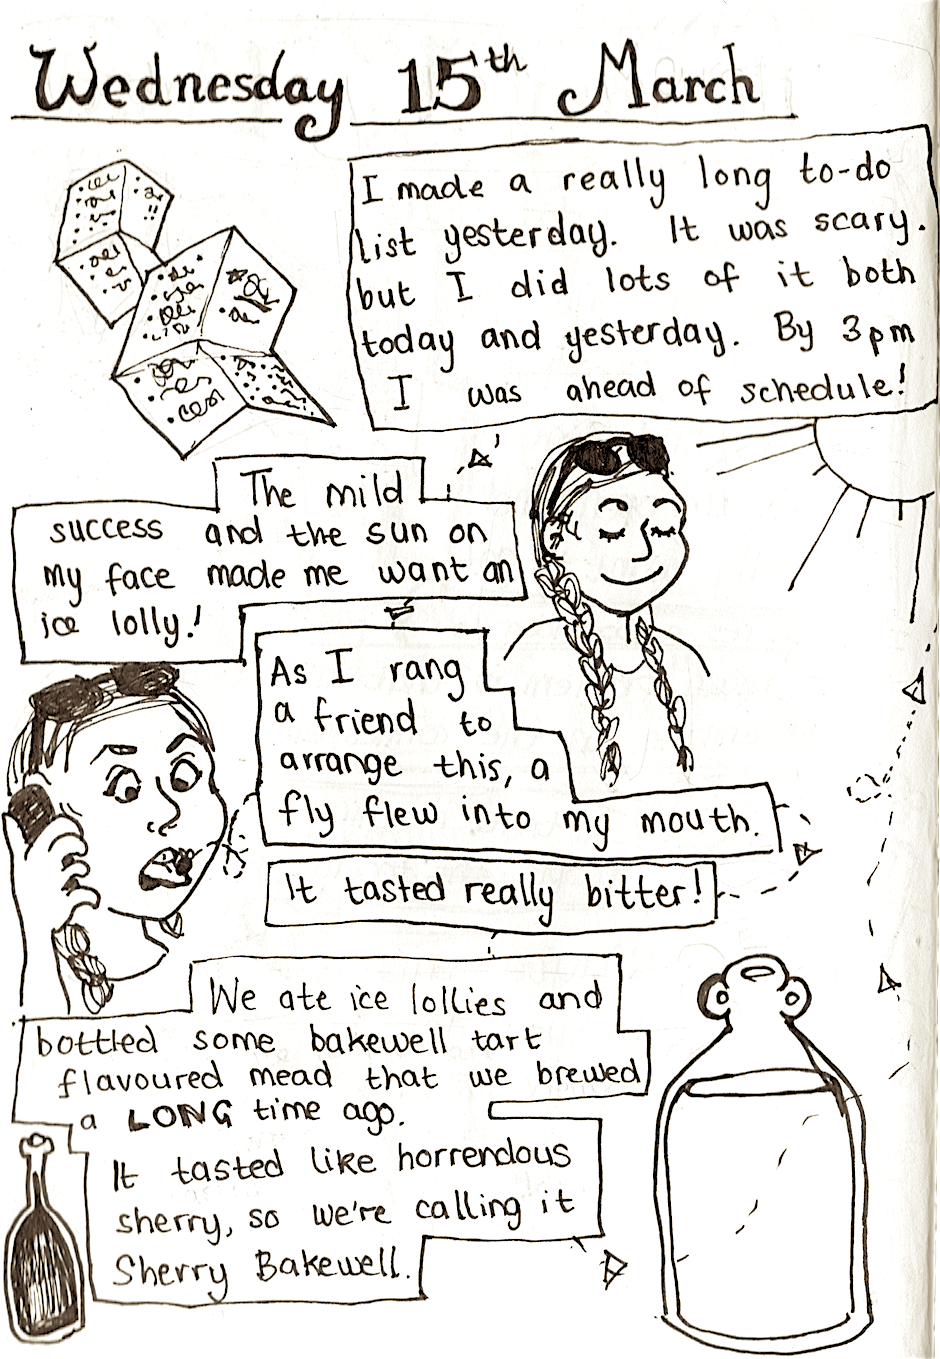 Wednesday 15th March
I made a really long to-do
list yesterday. It was scary.
but I did lots of it both
today and yesterday. By 3pm
I was ahead of schedule!
The mild
success and the sun on
my face made me want an
ice lolly!
As I rang
a friend to
arrange this, a
fly flew into my mouth.
It tasted really bitter!
We ate ice lollies and
bottled some bakewell tart
flavoured mead that we brewed
a LONG time ago.
It tasted like horrendous
sherry, so we're calling it
Sherry Bakewell.